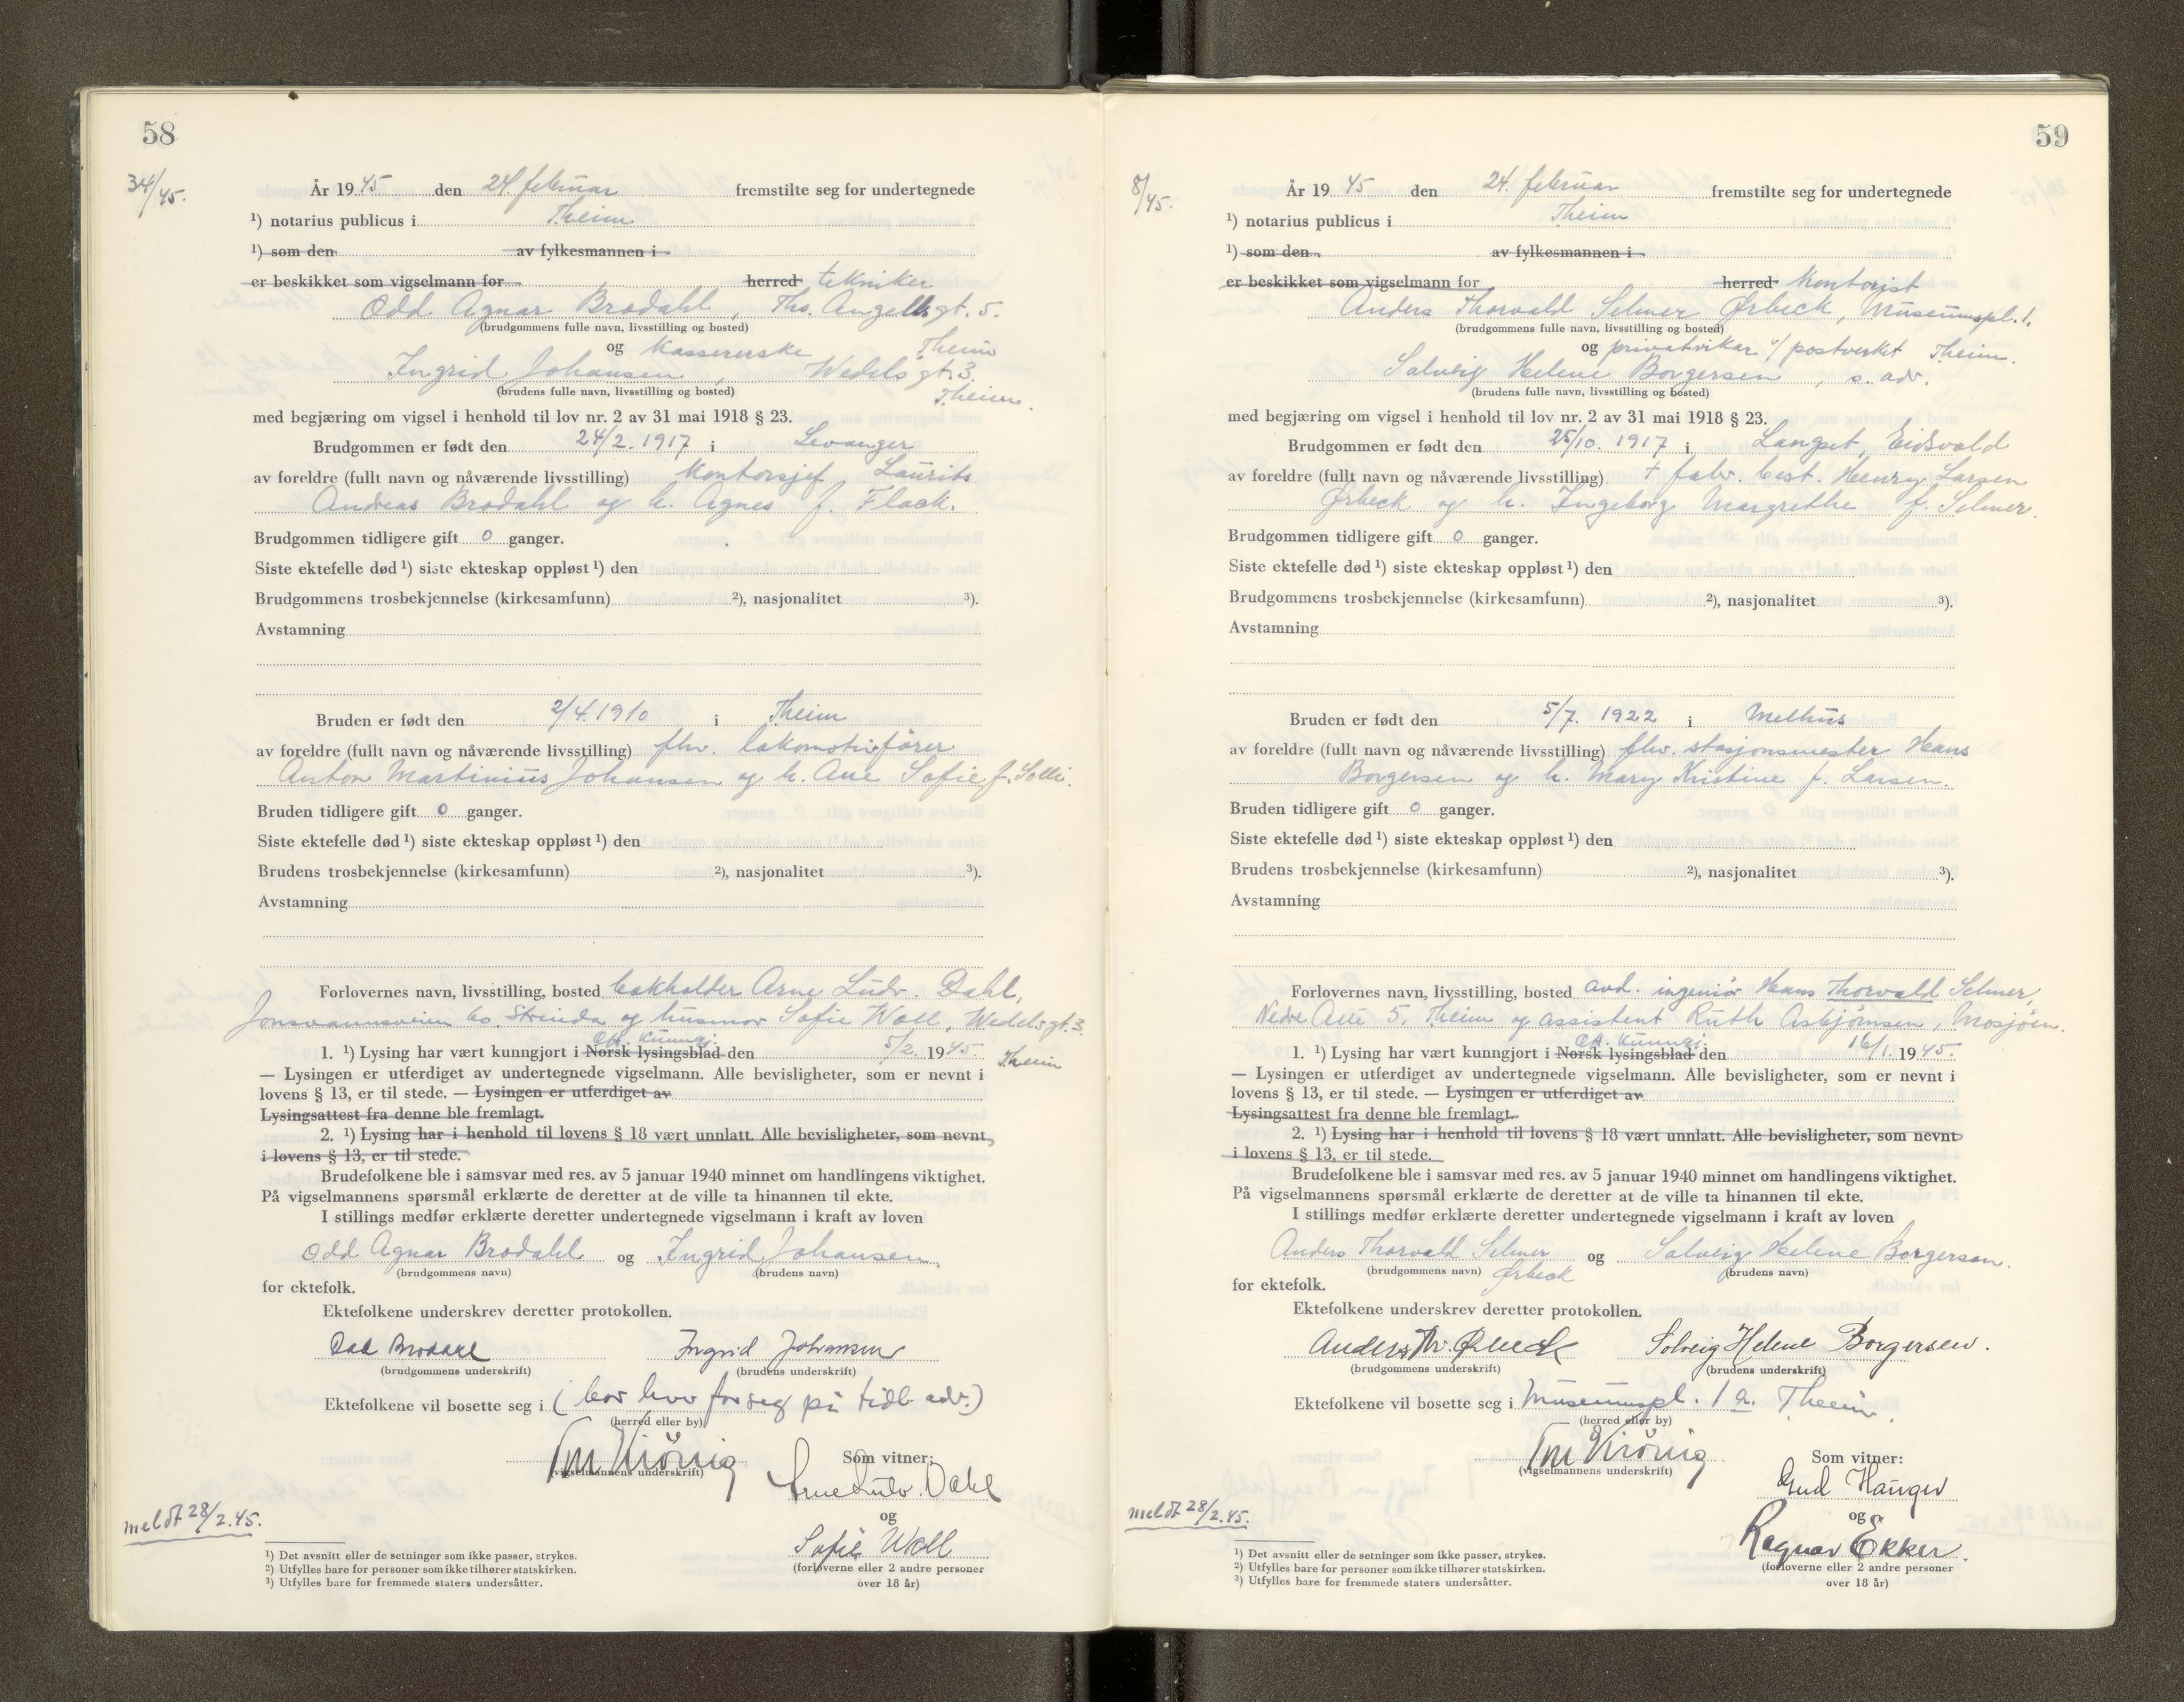 58
34/45.
År 1945 den 24. februar fremstilte seg for undertegnede
¹) notarius publicus i Theim
¹) som den av fylkesmannen i
er beskikket som vigselmann for herred tekniker
Odd Agnar Brodahl, Ths. Angells gt. 5.
(brudgommens fulle navn, livsstilling og bosted)
og kassererske Theim
Ingrid Johansen, Wedels gt. 3
(brudens fulle navn, livsstilling og bosted) Theim.
med begjæring om vigsel i henhold til lov nr. 2 av 31 mai 1918 § 23.
Brudgommen er født den 24/2. 1917 i Levanger
av foreldre (fullt navn og nåværende livsstilling) kontorsjef Laurits
Andreas Brodahl og h. Agnes f. Flack.
Brudgommen tidligere gift 0 ganger.
Siste ektefelle død ¹) siste ekteskap oppløst ¹) den
Brudgommens trosbekjennelse (kirkesamfunn) ²), nasjonalitet ³).
Avstamning
Bruden er født den 2/4. 1910 i Theim
av foreldre (fullt navn og nåværende livsstilling) fhv. lokomotivfører
Anton Martinius Johansen og h. Ane Sofie f. Solli.
Bruden tidligere gift 0 ganger.
Siste ektefelle død ¹) siste ekteskap oppløst ¹) den
Brudens trosbekjennelse (kirkesamfunn) ²), nasjonalitet ³).
Avstamning
Forlovernes navn, livsstilling, bosted bokholder Arne Ludv. Dahl,
Jonsvannsveien 60. Strinda og husmor Sofie Woll, Wedels gt. 3.
Off. kunngj.
1. ¹) Lysing har vært kunngjort i Norsk lysingsblad den 5/2. 1945. Theim
— Lysingen er utferdiget av undertegnede vigselmann. Alle bevisligheter, som er nevnt i
lovens § 13, er til stede. — Lysingen er utferdiget av
Lysingsattest fra denne ble fremlagt.
2. ¹) Lysing har i henhold til lovens § 18 vært unnlatt. Alle bevisligheter, som nevnt
i lovens § 13, er til stede.
Brudefolkene ble i samsvar med res. av 5 januar 1940 minnet om handlingens viktighet.
På vigselmannens spørsmål erklærte de deretter at de ville ta hinannen til ekte.
I stillings medfør erklærte deretter undertegnede vigselmann i kraft av loven
Odd Agnar Brodahl og Ingrid Johansen.
(brudgommens navn) (brudens navn)
for ektefolk.
Ektefolkene underskrev deretter protokollen.
Odd Brodahl Ingrid Johansen
(brudgommens underskrift) (brudens underskrift)
Ektefolkene vil bosette seg i (bor hver for seg på tidl. adr.)
(herred eller by)
Som vitner:
(vigselmannens underskrift)
Arne Ludv. Dahl
og
Sofie Woll
(forloverne eller 2 andre personer
over 18 år)
meldt 28/2.45.
¹) Det avsnitt eller de setninger som ikke passer, strykes.
²) Utfylles bare for personer som ikke tilhører statskirken.
³) Utfylles bare for fremmede staters undersåtter.
59
8/45.
År 1945 den 24. februar fremstilte seg for undertegnede
¹) notarius publicus i Theim
¹) som den av fylkesmannen i
er beskikket som vigselmann for herred kontorist
Anders Thorvald Selmer Ørbeck, Museumspl. 1.
(brudgommens fulle navn, livsstilling og bosted)
og privatvikar v/ postverket Theim.
Solveig Helene Borgersen, s. adr.
(brudens fulle navn, livsstilling og bosted)
med begjæring om vigsel i henhold til lov nr. 2 av 31 mai 1918 § 23.
Brudgommen er født den 25/10. 1917 i Langset, Eidsvold
av foreldre (fullt navn og nåværende livsstilling) + fabr. best. Henry Larsen
Ørbeck og h. Ingeborg Margrethe f. Selmer.
Brudgommen tidligere gift 0 ganger.
Siste ektefelle død ¹) siste ekteskap oppløst ¹) den
Brudgommens trosbekjennelse (kirkesamfunn) ²), nasjonalitet ³).
Avstamning
Bruden er født den 5/7. 1922 i Melhus
av foreldre (fullt navn og nåværende livsstilling) fhv. stasjonsmester Hans
Borgersen og h. Mary Kristine f. Larsen.
Bruden tidligere gift 0 ganger.
Siste ektefelle død ¹) siste ekteskap oppløst ¹) den
Brudens trosbekjennelse (kirkesamfunn) ²), nasjonalitet ³).
Avstamning
Forlovernes navn, livsstilling, bosted avd. ingeniør Hans Thorvald Selmer,
Nedre Alle 5, Theim og assistent Ruth Asbjørnsen, Mosjøen.
Off. kunngj.
1. ¹) Lysing har vært kunngjort i Norsk lysingsblad den 16/1. 1945.
— Lysingen er utferdiget av undertegnede vigselmann. Alle bevisligheter, som er nevnt i
lovens § 13, er til stede. — Lysingen er utferdiget av
Lysingsattest fra denne ble fremlagt.
2. ¹) Lysing har i henhold til lovens § 18 vært unnlatt. Alle bevisligheter, som nevnt
i lovens § 13, er til stede.
Brudefolkene ble i samsvar med res. av 5 januar 1940 minnet om handlingens viktighet.
På vigselmannens spørsmål erklærte de deretter at de ville ta hinannen til ekte.
I stillings medfør erklærte deretter undertegnede vigselmann i kraft av loven
Anders Thorvald Selmer og Solveig Helene Borgersen.
(brudgommens navn) Ørbeck (brudens navn)
for ektefolk.
Ektefolkene underskrev deretter protokollen.
Anders Th. Ørbeck Solveig Helene Borgersen.
(brudgommens underskrift) (brudens underskrift)
Ektefolkene vil bosette seg i Museumspl. 1 a. Theim.
(herred eller by)
Som vitner:
(vigselmannens underskrift)
Gud Hauger
og
Ragnar Ekker.
(forloverne eller 2 andre personer
over 18 år)
meldt 28/2.45.
¹) Det avsnitt eller de setninger som ikke passer, strykes.
²) Utfylles bare for personer som ikke tilhører statskirken.
³) Utfylles bare for fremmede staters undersåtter.